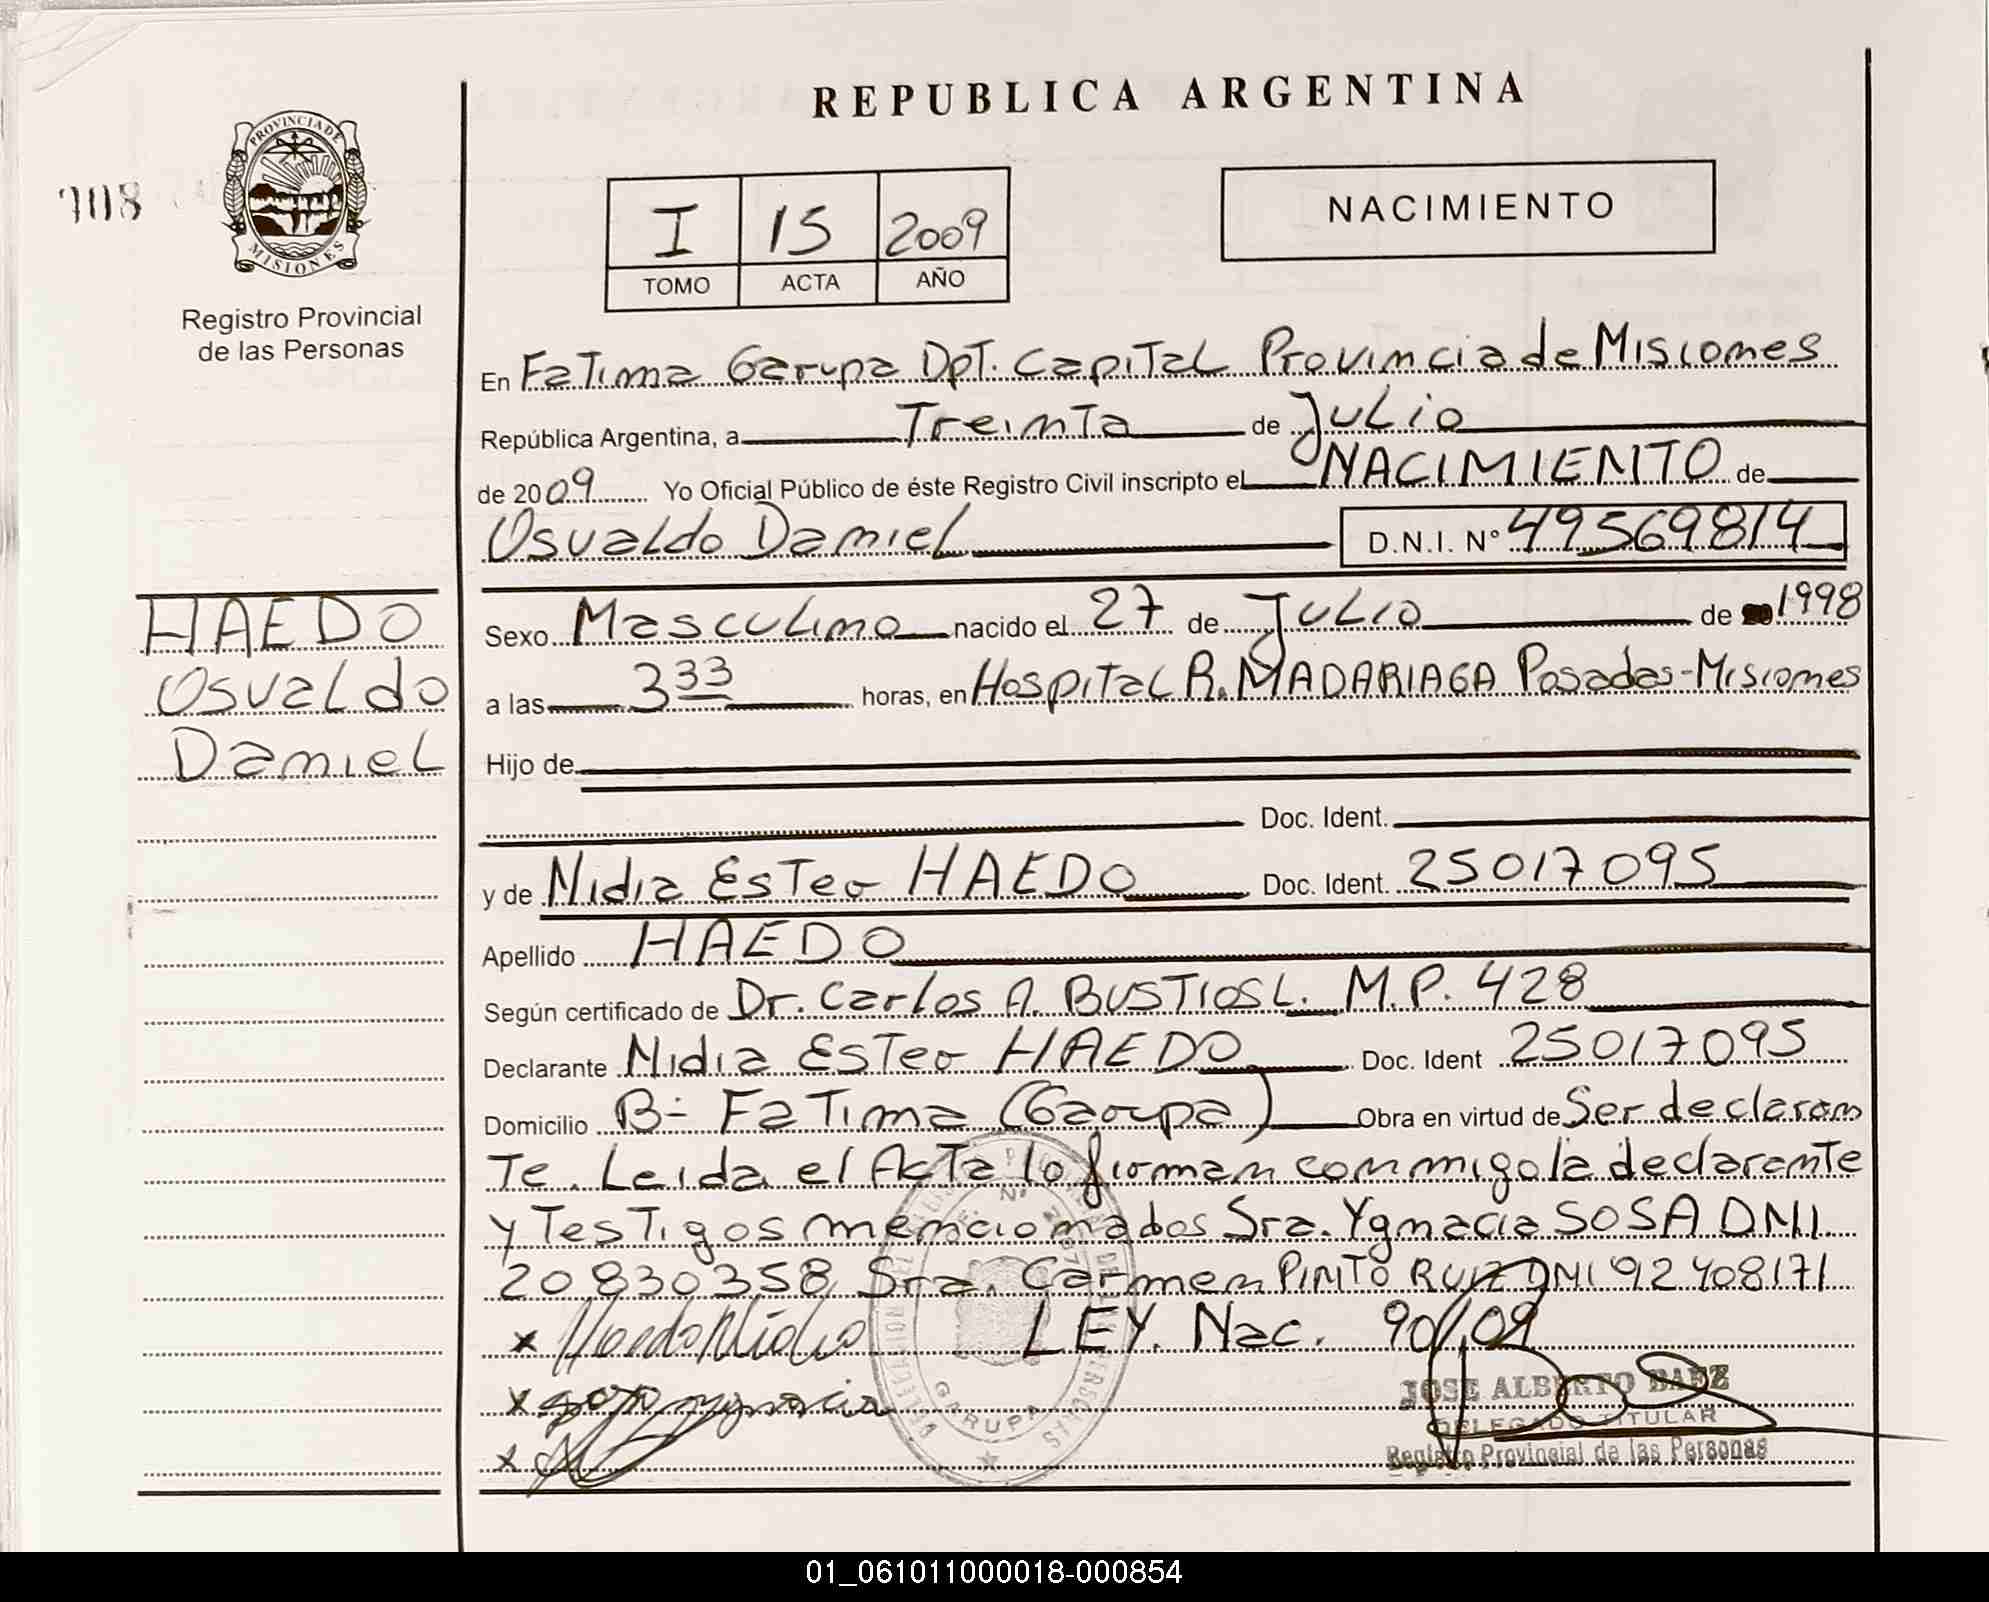 REPUBLICA ARGENTINA
PROVINCIA DE
MISIONES
708
Registro Provincial
de las Personas
I 15 2009
TOMO ACTA AÑO
NACIMIENTO
En Fatima Garupa Dpt. Capital Provincia de Misiones
República Argentina, a Treinta de Julio
de 2009 Yo Oficial Público de éste Registro Civil inscripto el NACIMIENTO de
Osvaldo Daniel D.N.I. N° 49569814
HAEDO
Osvaldo
Daniel
Sexo Masculino nacido el 27 de Julio de 1998
a las 3 33 horas, en Hospital R. MADARIAGA Posadas-Misiones
Hijo de
Doc. Ident.
y de Nidia Ester HAEDO Doc. Ident. 25017095
Apellido HAEDO
Según certificado de Dr. Carlos A. BUSTIOS L. M.P. 428
Declarante Nidia Ester HAEDO Doc. Ident 25017095
Domicilio B- Fatima (Garupa) Obra en virtud de Ser declaran
te. Leida el Acta lo firman conmigo la declarante
y Testigos mencionados Sra. Ygnacia SOSA DNI.
20830358 Sra. Carmen PINTO RUIZ DNI 92408171
x Haedo Nidia LEY. Nac. 90/09
x sosa ygnacia
x
GARUPA
JOSE ALBERTO BAEZ
DELEGADO TITULAR
Registro Provincial de las Personas
01_061011000018-000854